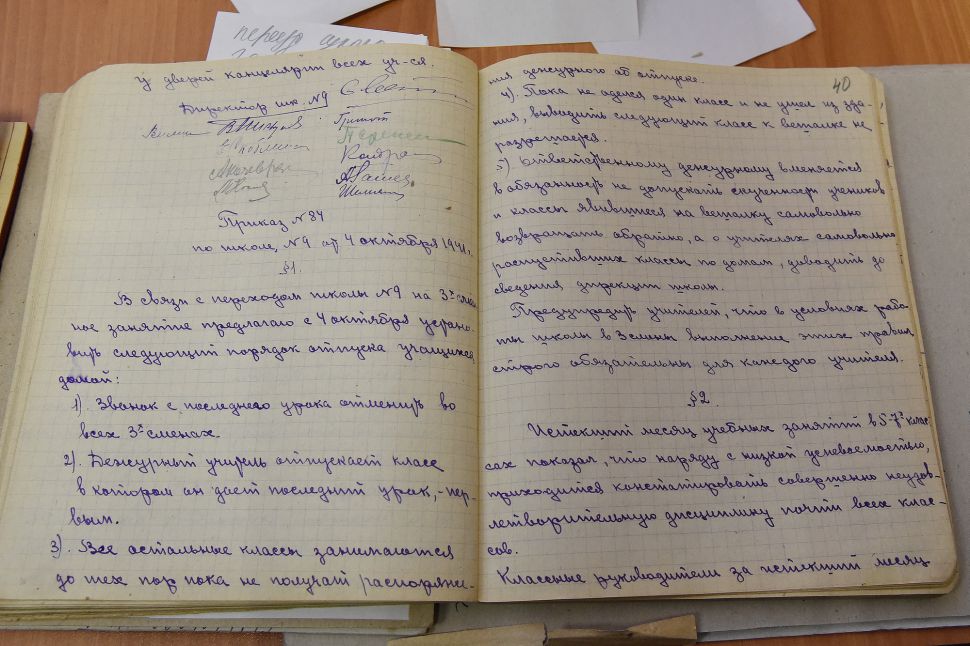 у дверей канцелярии всех уч-ся.
Директор шк. №9
Приказ №84
по школе №9 от 4 октября 1941 г.
§1.
В связи с переходом школы №9 на 3х смен-
ное занятие предлагаю с 4 октября устано-
вить следующий порядок отпуска учащихся
домой:
1). Звонок с последнего урока отменить во
всех 3х сменах.
2). Дежурный учитель отпускает класс
в котором он дает последний урок, - пер-
вым.
3). Все остальные классы занимаются
до тех пор пока не получат распоряже-
40
ния дежурного об отпуске.
4). Пока не оделся один класс и не ушел из зда-
ния, выводить следующий класс к вешалке не
разрешается.
5) Ответственному дежурному вменяется
в обязанность не допускать скученности учеников
и классы явившиеся на вешалку самовольно
возвращать обратно, а о учителях самовольно
распустивших классы по домам, доводить до
сведения дирекции школы.
Предупредить учителей, что в условиях рабо
ты школы в 3 смены выполнение этих правил
строго обязательны для каждого учителя.
§2.
Истекший месяц учебных занятий в 5-7х клас-
сах показал, что наряду с низкой успеваемостью,
приходится констатировать совершенно неудов-
летворительную дисциплину почти всех клас-
сов.
Классные руководители за истекший месяц